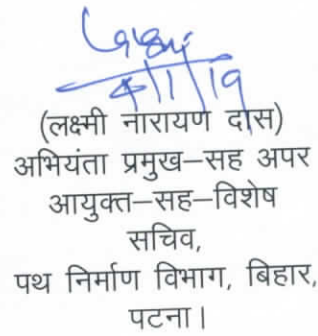 4/1/19
(लक्ष्मी नारायण दास)
अभियंता प्रमुख–सह अपर
आयुक्त–सह–विशेष
सचिव,
पथ निर्माण विभाग, बिहार,
पटना।